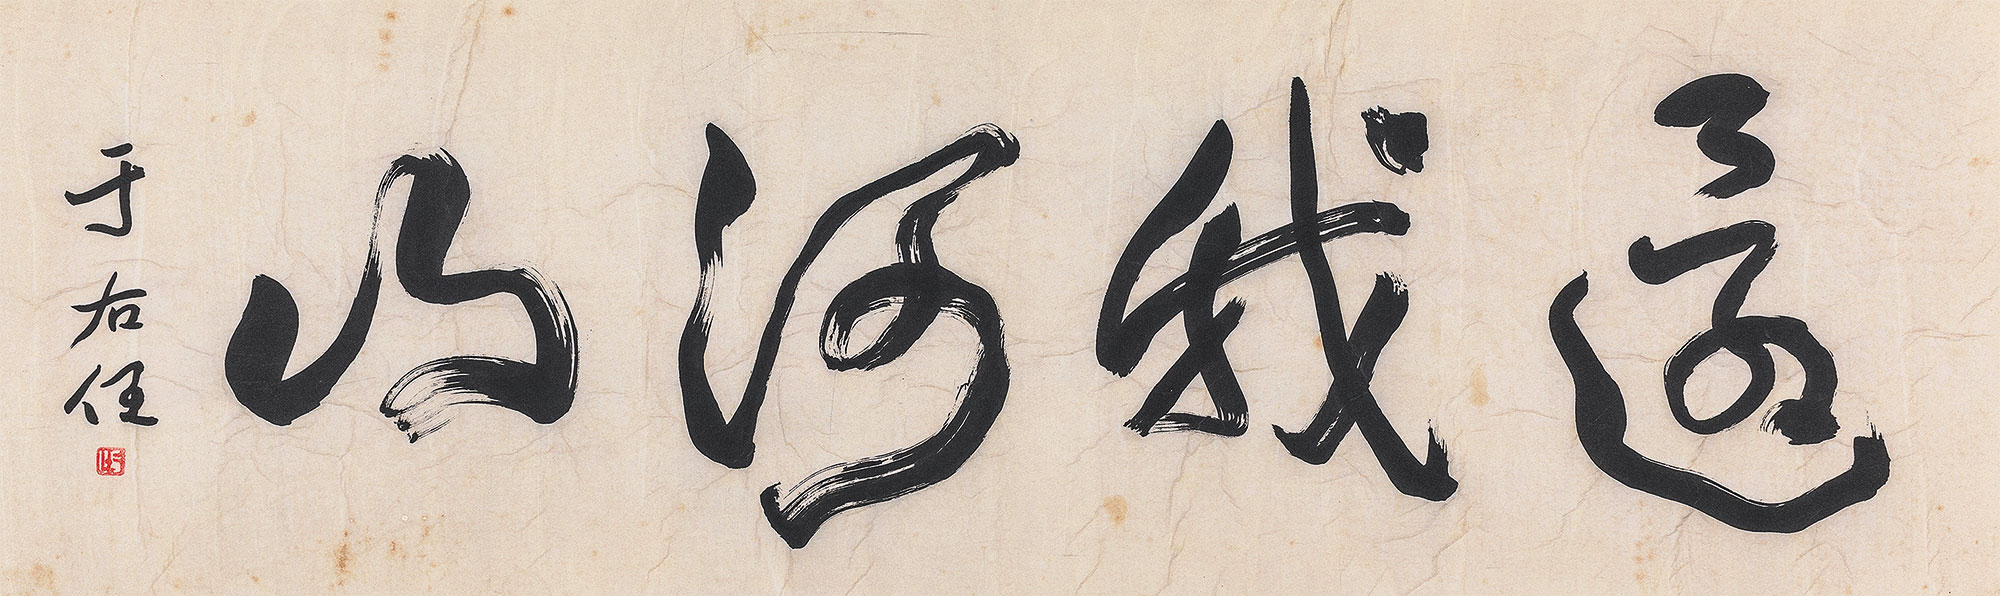 還我河山
于右任